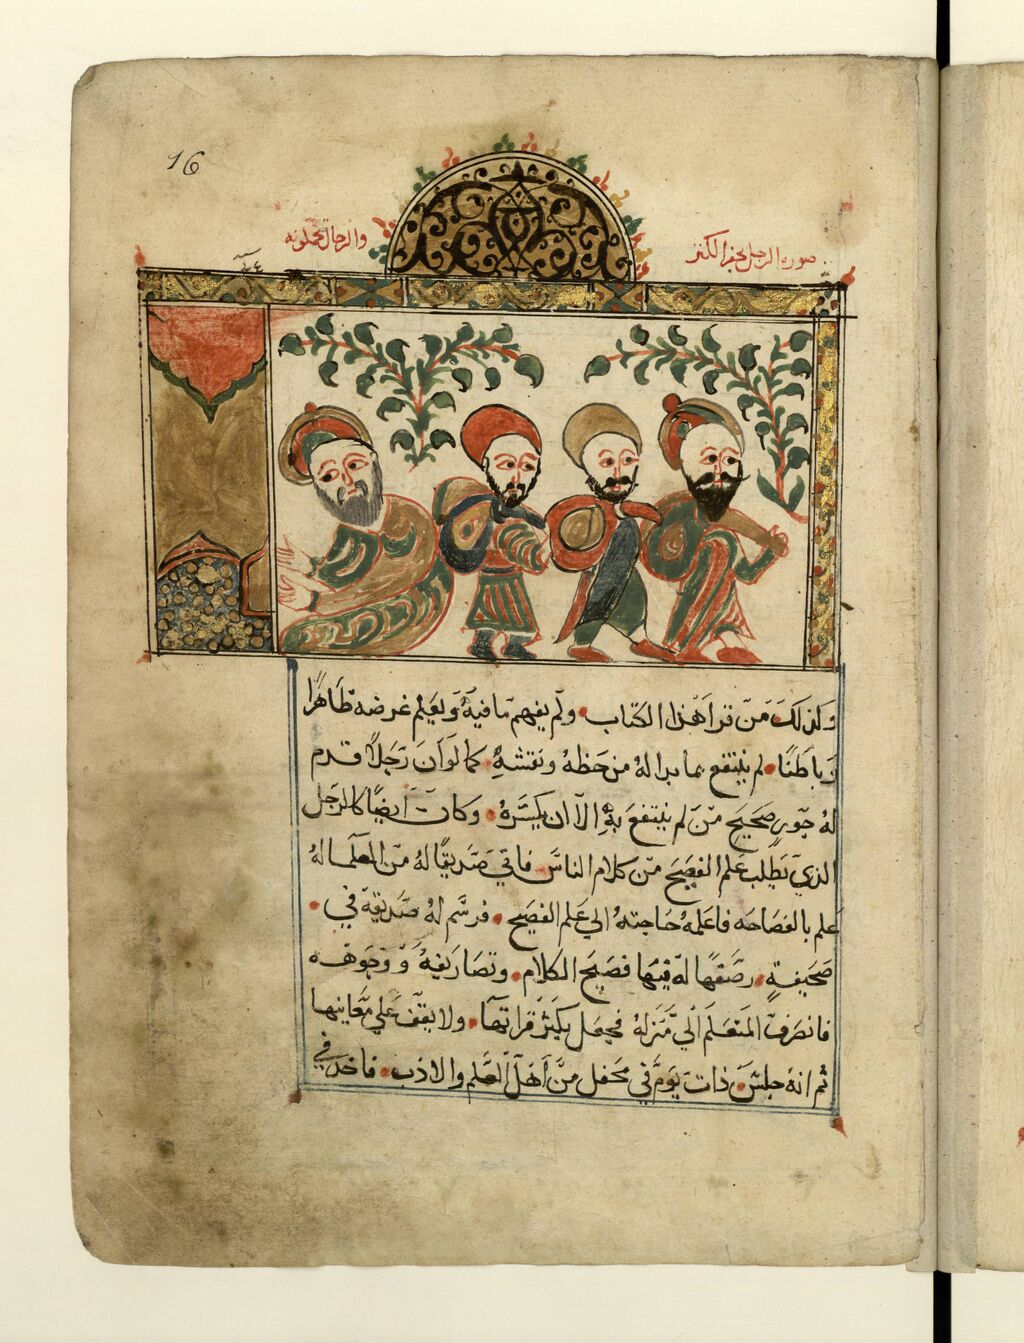 16
صورة الرجل يحفر الكنز
والرجال يحملونه
وكذلك من قرا هذا الكتاب ولم يفهم ما فيه ويعلم غرضه ظاهرًا
وباطنًا لم ينتفع بما بدا له من حظه ونقشه كما لو ان رجلا قدم
له جوز صحيح من لم ينتفع به الا ان يكسره وكان ايضا كالرجل
الذي يطلب علم الفصيح من كلام الناس فاتي صديقا له من العلما له
علم بالفصاحه فاعلمه حاجته الي علم الفصيح فرسم له صديقه في
صحيفة وصفها له فيها فصيح الكلام وتصاريفه ووجوهه
فانصرف المتعلم الي منزله فجعل يكثر قراتها ولا يقف علي معانيها
ثم انه جلس ذات يوم في محفل من اهل العلم والادب فاخذ في